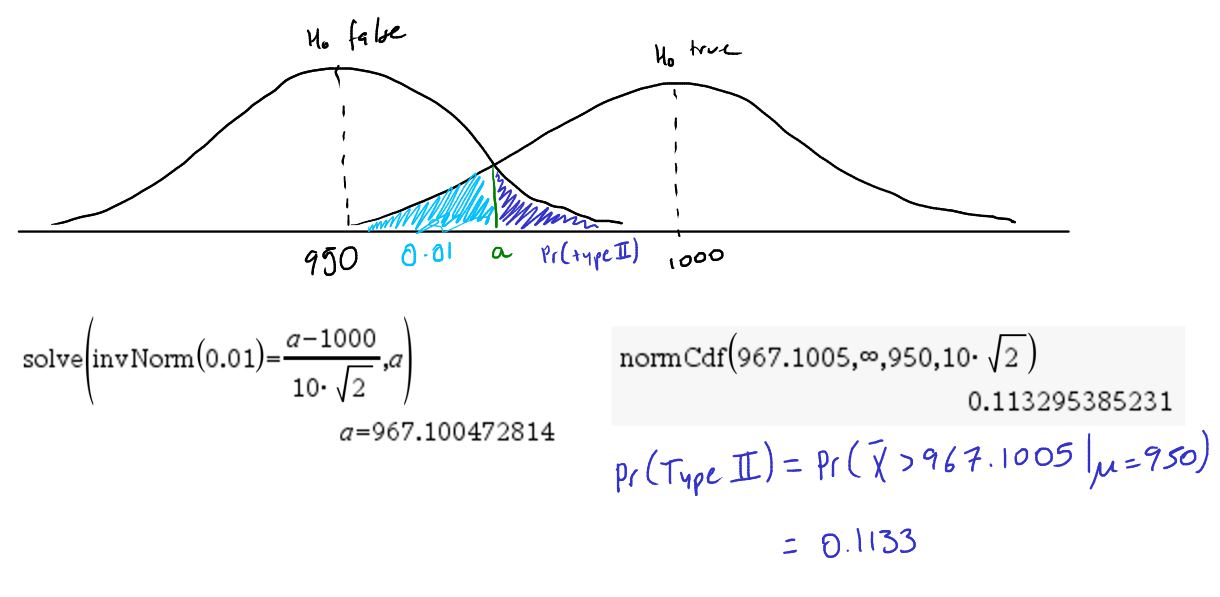 H₀ false
H₀ true
950
0.01
a
Pr(type II)
1000
solve(invNorm(0.01)=(a−1000)/(10·√2),a)
a=967.100472814
normCdf(967.1005,∞,950,10·√2)
0.113295385231
Pr(Type II) = Pr(X̄ > 967.1005 | μ = 950)
= 0.1133